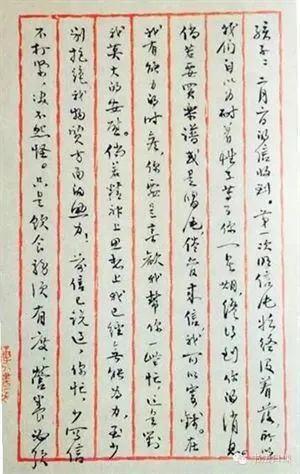 孩子：二月六日的信收到。第一次明信片始终没着落，所以
我们自以为耐着性子等了你一星期，终得到你的消息。
倘若要买乐谱或是唱片，尽管来信，我可以寄钱。在
我有能力的时候，你要是喜欢我帮你一些忙，这是对
我莫大的安慰。倘若精神上思想上我已经无能为力，至少
别拒绝我物质方面的出力！前信已说过，你忙，少写信
不打紧，决不怪。只是饮食必须有度，营养必须